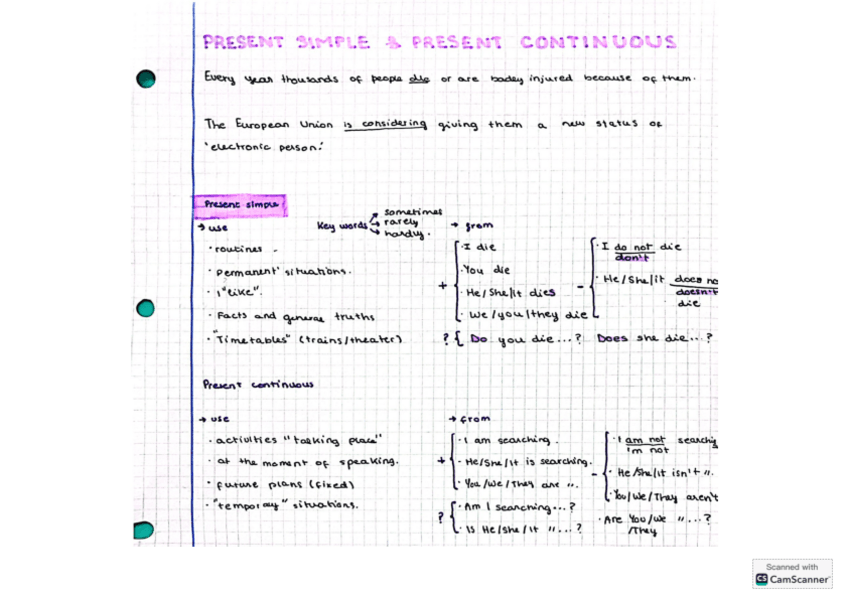 PRESENT SIMPLE & PRESENT CONTINUOUS
Every year thousands of people die or are badey injured because of them.
The European Union is considering giving them a new status of
'electronic person.'
Present simple
→ use
Key words
sometimes
rarely
hardly.
· routines
· permanent situations.
· I "like".
· Facts and general truths
· "Timetables" (trains/theater)
→ from
+
· I die
· You die
· He/She/it dies
· We/you/they die
-
· I do not die
don't
· He/She/it does no
doesn't
die
? { Do you die...? Does she die...?
Present continuous
→ use
· activities "talking place"
· at the moment of speaking.
· future plans (fixed)
· "temporay" situations.
→ from
+
· I am searching.
· He/She/it is searching.
· You/We/They are ".
-
· I am not searching
I'm not
· He/She/it isn't ".
· You/We/They aren't
?
· Am I searching...?
· Is He/she/it "...?
· Are You/We "...?
/They
Scanned with
CS CamScanner